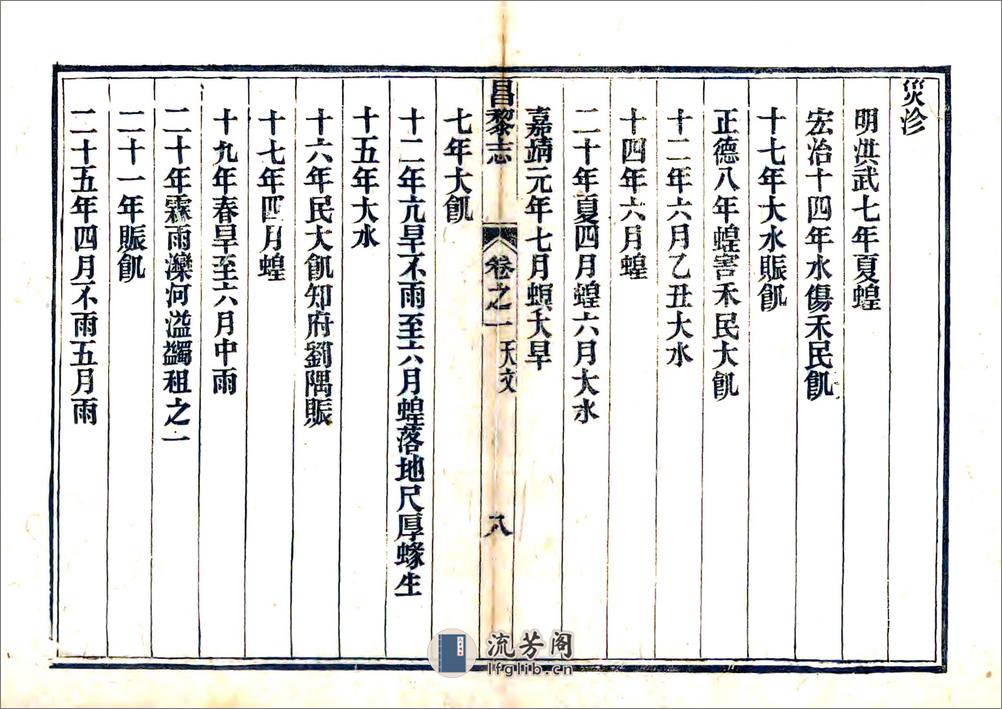 災沴
明洪武七年夏蝗
宏治十四年水傷禾民飢
十七年大水賑飢
正德八年蝗害禾民大飢
十二年六月乙丑大水
十四年六月蝗
二十年夏四月蝗六月大水
嘉靖元年七月螟大旱
昌黎志
卷之一
天文
八
七年大飢
十二年亢旱不雨至六月蝗落地尺厚蝝生
十五年大水
十六年民大飢知府劉隅賑
十七年四月蝗
十九年春旱至六月中雨
二十年霖雨灤河溢蠲租之一
二十一年賑飢
二十五年四月不雨五月雨
流芳阁
lfglib.cn